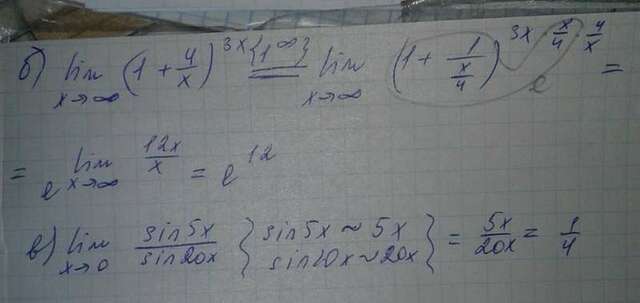 б) lim x→∞ (1 + 4/x)^3x {1^∞} = lim x→∞ (1 + 1/(x/4))^(3x · x/4 · 4/x) e =
= e^(lim x→∞ 12x/x) = e^12
в) lim x→0 sin5x/sin20x {sin5x ~ 5x sin20x ~ 20x} = 5x/20x = 1/4